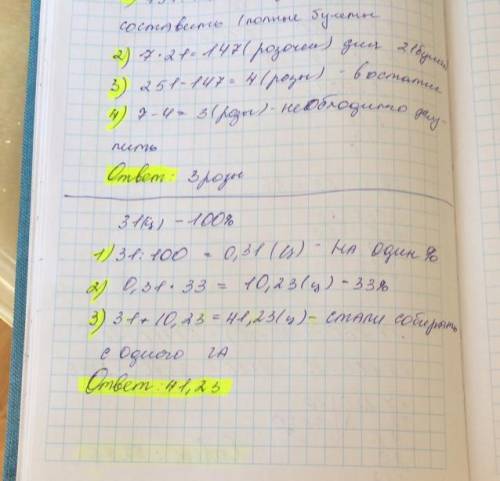 составить (полные букеты
2) 7 · 21 = 147 (розочек) для 21 (букета)
3) 251 - 147 = 4 (розы) - в остатке
4) 7 - 4 = 3 (розы) - необходимо доку-
пить
Ответ: 3 розы
31 (ц) - 100%
1) 31 : 100 = 0,31 (ц) - на один %
2) 0,31 · 33 = 10,23 (ц) - 33%
3) 31 + 10,23 = 41,23 (ц) - стали собирать
с одного га
Ответ: 41,23